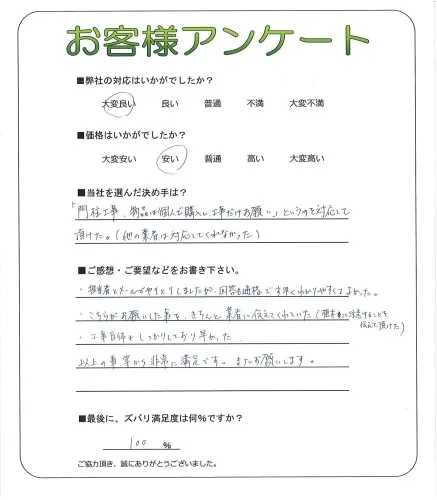 お客様アンケート
■弊社の対応はいかがでしたか？
大変良い 良い 普通 不満 大変不満
■価格はいかがでしたか？
大変安い 安い 普通 高い 大変高い
■当社を選んだ決め手は？
「門柱工事、物品は個人で購入し、工事だけお願い」というのを対応して
頂けた。（他の業者は対応してくれなかった）
■ご感想・ご要望などをお書き下さい。
・担当者とメールでやりとりしましたが、回答も適格で早くわかりやすくてよかった。
・こちらがお願いした事を、きちんと業者に伝えてくれていた（ に注意することを
伝えて頂けた）
・工事自体もしっかりしており早かった
以上の事等から非常に満足です。またお願いします。
■最後に、ズバリ満足度は何％ですか？
100 ％
ご協力頂き、誠にありがとうございました。